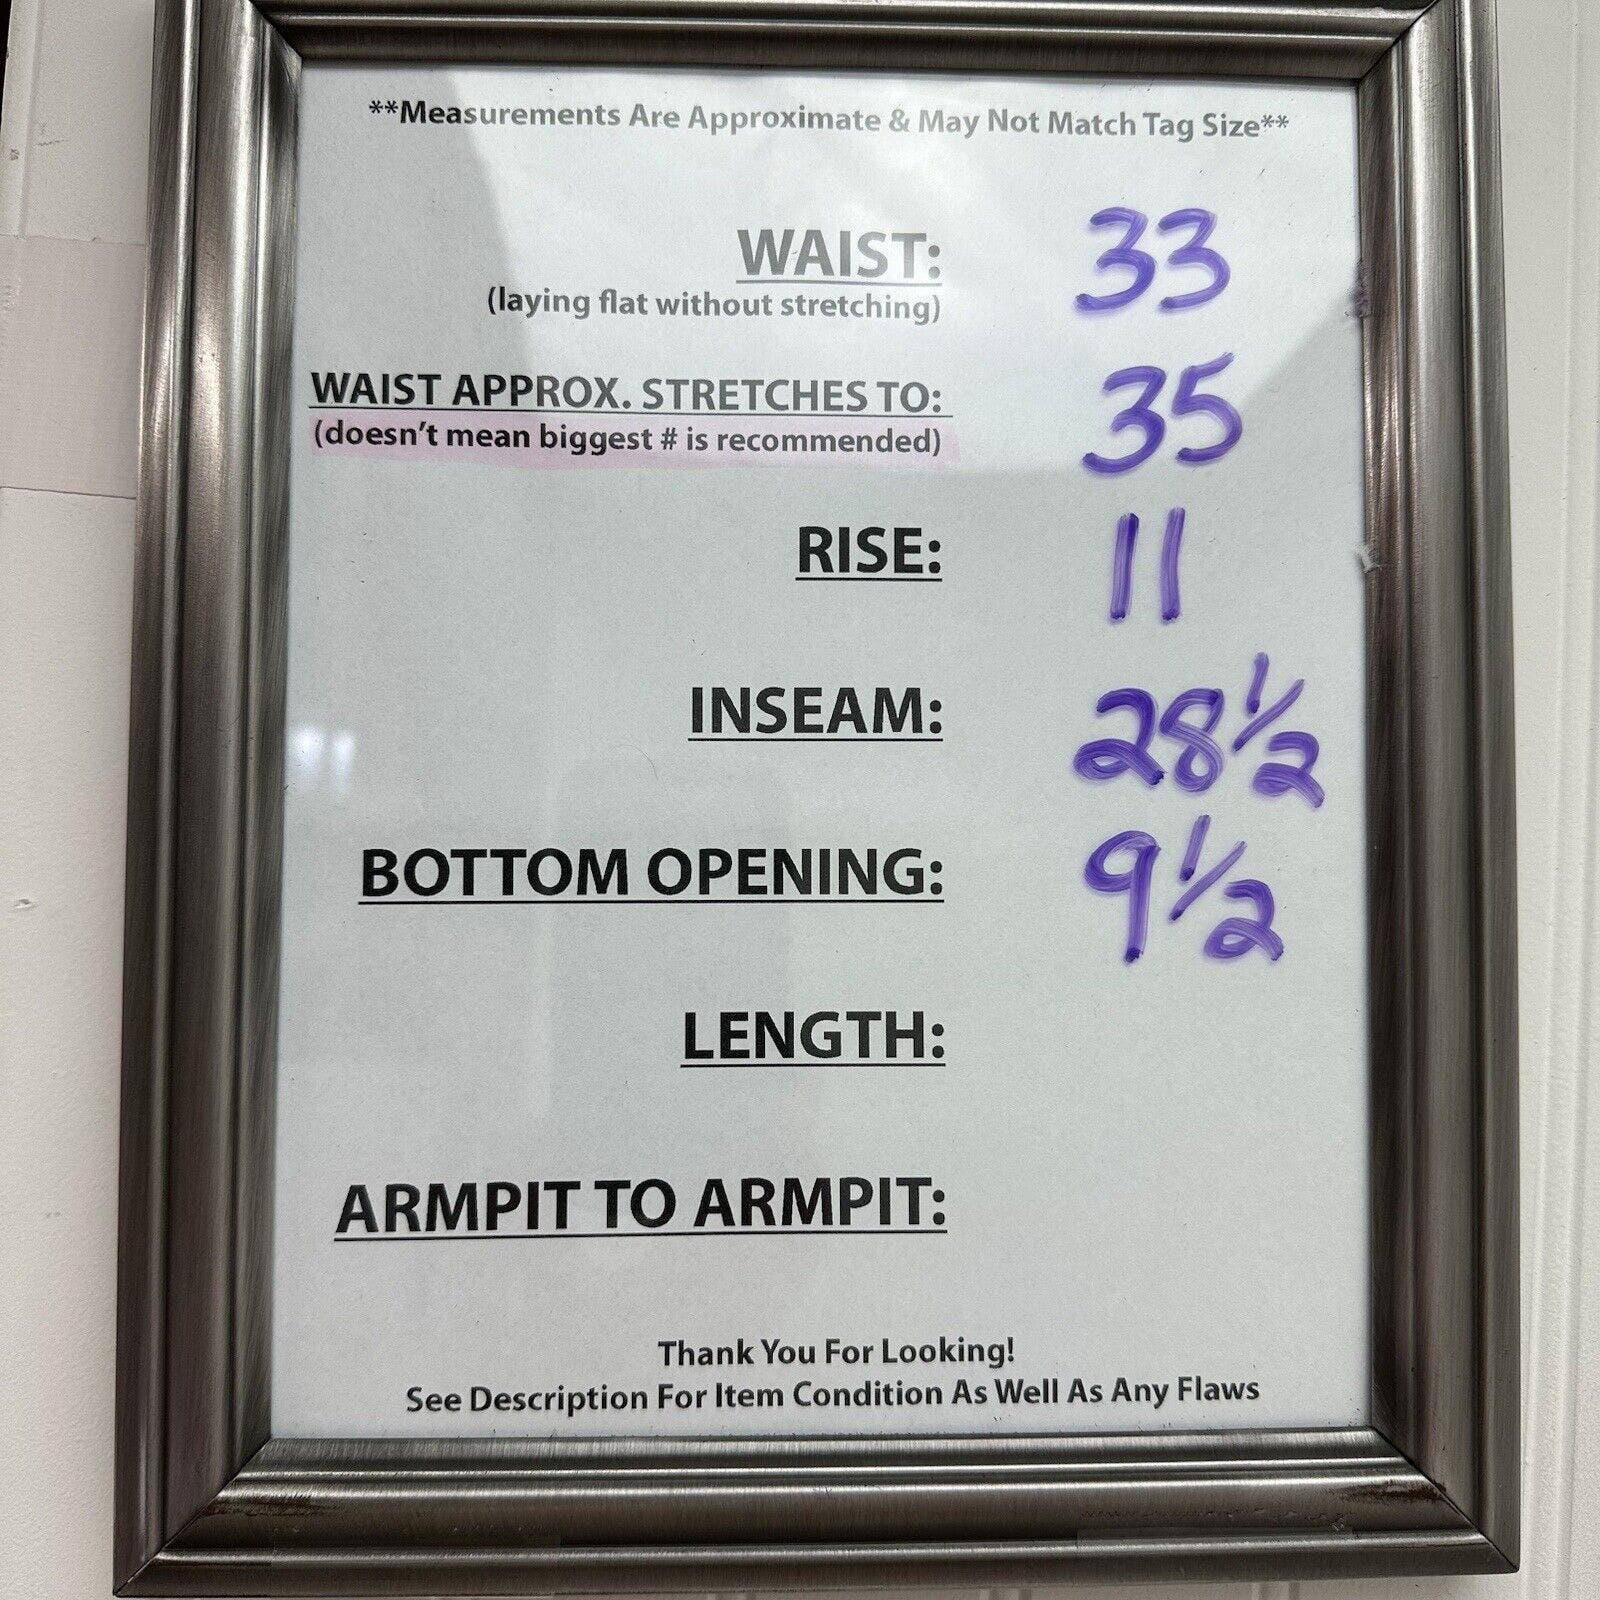 **Measurements Are Approximate & May Not Match Tag Size**
WAIST: 33
(laying flat without stretching)
WAIST APPROX. STRETCHES TO: 35
(doesn't mean biggest # is recommended)
RISE: 11
INSEAM: 28 1/2
BOTTOM OPENING: 9 1/2
LENGTH:
ARMPIT TO ARMPIT:
Thank You For Looking!
See Description For Item Condition As Well As Any Flaws